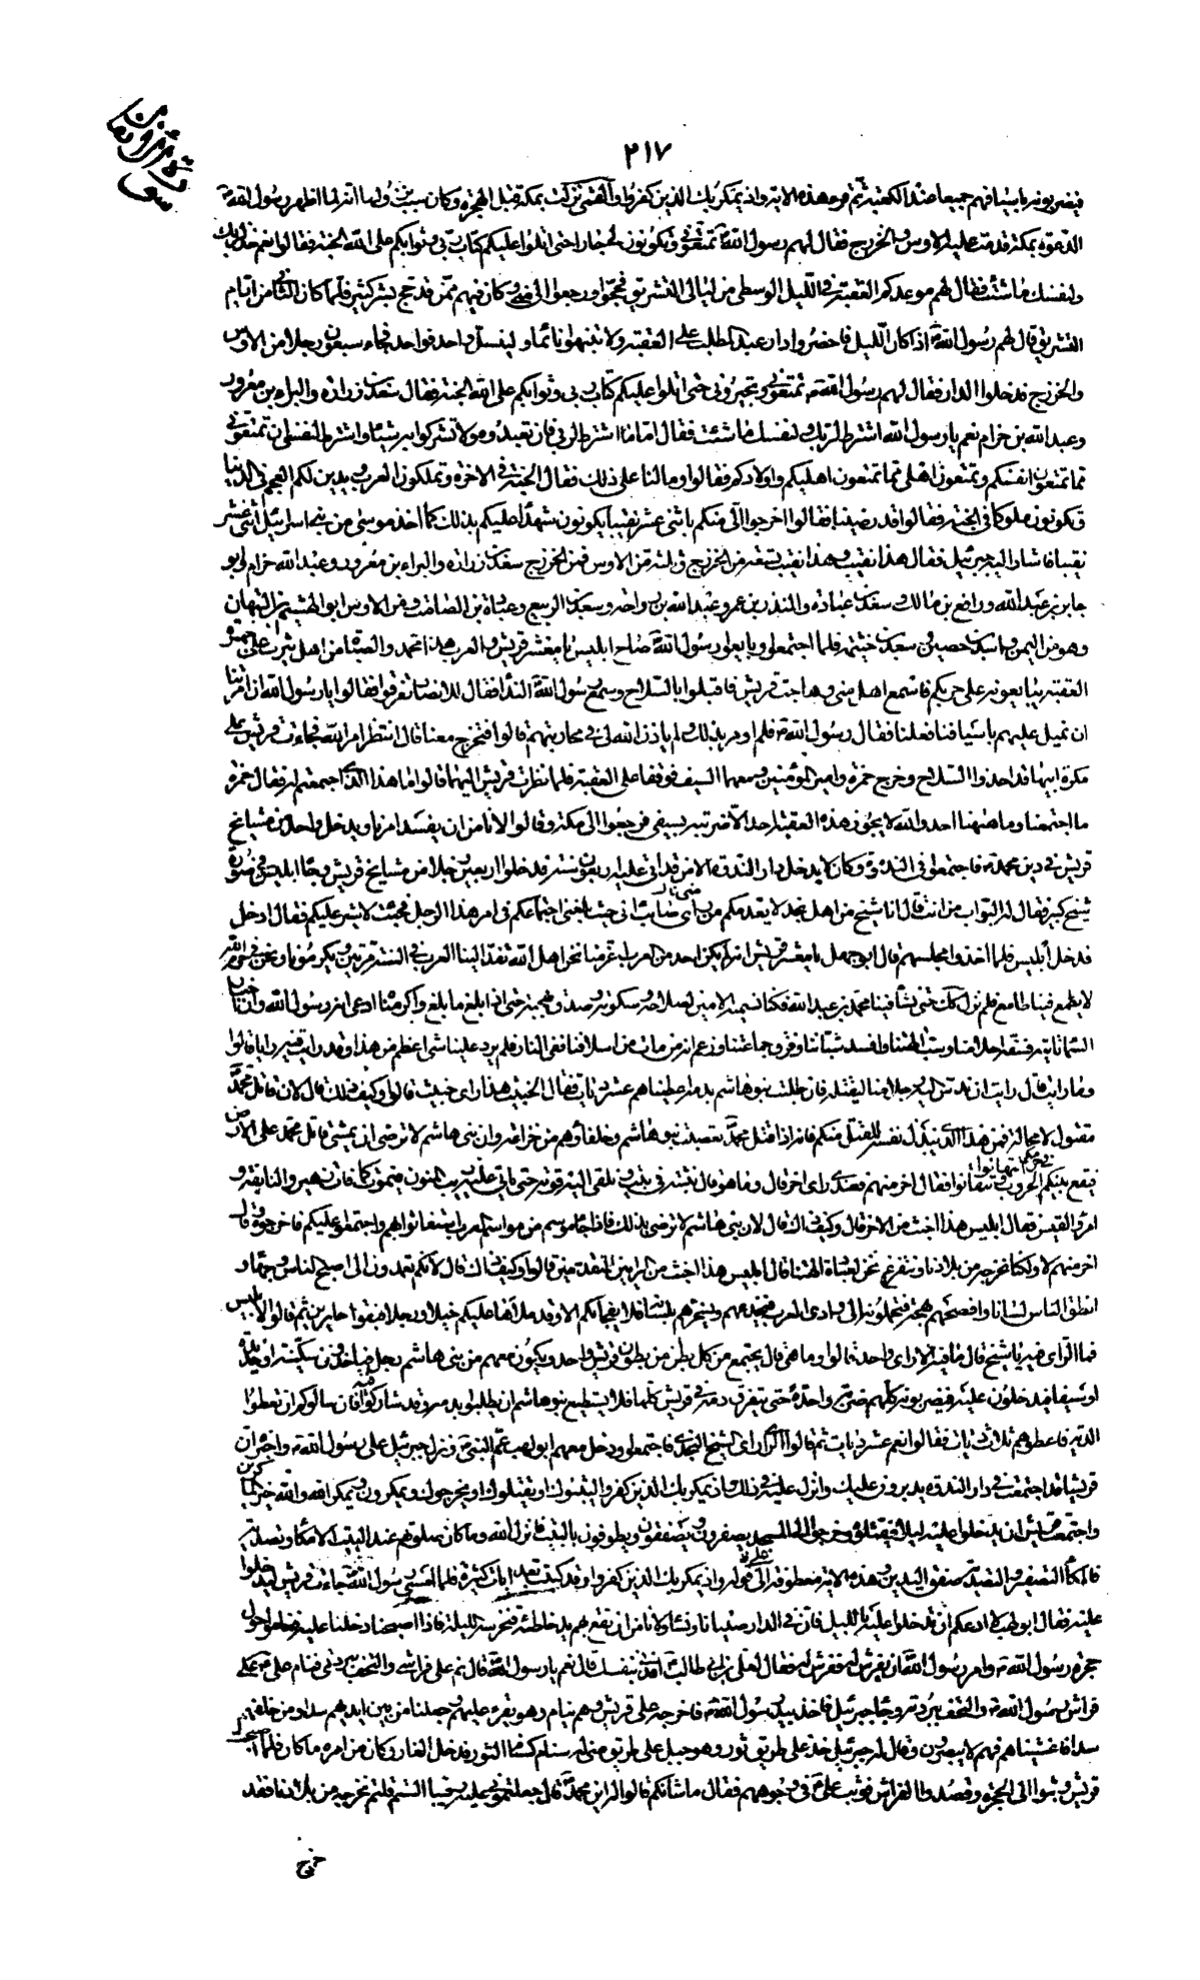 ٢١٧
فيضربونه باسيافهم جميعا عند الكعبة ثم قرء هذه الاية واذ يمكر بك الذين كفروا والقمى نزلت بمكة قبل الهجرة وكان سبب نزولها انه لما اظهر رسول الله ص
الدعوة بمكة قدمت عليه الاوس والخزرج فقال لهم رسول الله ص تمنعونى وتكونون لى جارا حتى اتلوا عليكم كتاب ربى وثوابكم على الله الجنة فقالوا نعم خذ لربك
ولنفسك ما شئت فقال لهم موعدكم العقبة فى الليل الوسطى من ليالى التشريق فحجوا ورجعوا الى منى وكان فيهم ممن قد حج بشر كثير فلما كان الثانى من ايام
التشريق قال لهم رسول الله ص اذا كان الليل فاحضروا دار عبد المطلب على العقبة ولا تنبهوا نائما ولينسل واحد فواحد فجاء سبعون رجلا من الاوس
والخزرج فدخلوا الدار فقال لهم رسول الله ص تمنعونى وتجيرونى حتى اتلوا عليكم كتاب ربى وثوابكم على الله الجنة فقال سعد بن زرارة والبراء بن معرور
وعبد الله بن حزام نعم يا رسول الله اشترط لربك ولنفسك ما شئت فقال اما ما اشترط لربى فان تعبدوه ولا تشركوا به شيئا واشترط لنفسى ان تمنعونى
مما تمنعون انفسكم وتمنعون اهلى مما تمنعون اهليكم واولادكم فقالوا وما لنا على ذلك فقال الجنة فى الاخرة وتملكون العرب ويدين لكم العجم فى الدنيا
وتكونون ملوكا فى الجنة فقالوا قد رضينا فقالوا اخرجوا الى منكم باثنى عشر نقيبا يكونون شهداء عليكم بذلك كما اخذ موسى من بنى اسرائيل اثنى عشر
نقيبا فاشار اليه جبرئيل فقال هذا نقيب وهذا نقيب تسعة من الخزرج وثلثة من الاوس فمن الخزرج سعد بن زرارة والبراء بن معرور وعبد الله حزام ابو
جابر بن عبد الله ورافع بن مالك وسعد بن عبادة والمنذر بن عمرو وعبد الله بن رواحة وسعد بن الربيع وعبادة بن الصامت ومن الاوس ابو الهشيم بن التيهان
وهو من اليمن واسيد بن حصين وسعد بن خيثمة فلما اجتمعوا وبايعوا رسول الله ص صاح ابليس يا معشر قريش والعرب هذا محمد والصباة من اهل يثرب على جمرة
العقبة يبايعونه على حربكم فاسمع اهل منى وهاجت قريش فاقبلوا بالسلاح وسمع رسول الله ص النداء فقال للانصار تفرقوا فقالوا يا رسول الله ان امرتنا
ان نميل عليهم باسيافنا فعلنا فقال رسول الله ص فلم اومر بذلك ولم ياذن الله لى فى محاربتهم قالوا فتخرج معنا قال انتظر امر الله فجاءت قريش على
بكرة ابيها قد اخذوا السلاح وخرج حمزة وامير المؤمنين ومعهما السيف فوقفا على العقبة فلما نظرت قريش اليهما قالوا ما هذا الذى اجتمعتم له فقال حمزة
ما اجتمعنا وما ههنا احد والله لا يجوز هذه العقبة احد الا ضربته بسيفى فرجعوا الى مكة وقالوا لا نامن ان يفسد امرنا ويدخل واحد من مشايخ
قريش فى دين محمد ص فاجتمعوا فى الندوة وكان لا يدخل دار الندوة الا من قد اتى عليه اربعون سنة فدخلوا اربعين رجلا من مشايخ قريش وجاء ابليس فى صورة
شيخ كبير فقال له البواب من انت قال انا شيخ من اهل نجد لا يعدمكم منى راى صائب انى حيث بلغنى اجتماعكم فى امر هذا الرجل فجئت لاشير عليكم فقال ادخل
فدخل ابليس فلما اخذوا مجلسهم قال ابو جهل يا معشر قريش انه لم يكن احد من العرب اعز منا نحن اهل الله تفد الينا العرب فى السنة مرتين ويكرمونا ونحن فى حرم الله
لا يطمع فينا طامع فلم نزل كك حتى نشا فينا محمد بن عبد الله فكنا نسميه الامين لصلاحه وسكونه وصدق لهجته حتى اذا بلغ ما بلغ واكرمناه ادعى انه رسول الله وان اخبار
السماء تاتيه فسفه احلامنا وسب الهتنا وافسد شباننا وفرق جماعتنا وزعم انه من مات من اسلافنا ففى النار فلم يرد علينا شئ اعظم من هذا وقد رايت فيه رايا قالوا
وما رايت قال رايت ان ندس اليه رجلا منا ليقتله فان طلبت بنو هاشم بدمه اعطيناهم عشر ديات فقال الخبيث هذا راى خبيث قالوا وكيف ذلك قال لان قاتل محمد
مقتول لا محالة فمن هذا الذى يبذل نفسه للقتل منكم فانه اذا قتل محمد تعصبت بنو هاشم وحلفاؤهم من خزاعة وان بنى هاشم لا ترضى ان يمشى قاتل محمد على الارض
فيقع بينكم الحروب وتتفانوا فقال اخر منهم فعندى راى اخر قال وما هو قال نثبته فى بيت ونلقى اليه قوته حتى ياتى عليه ريب المنون فيموت كما مات زهير والنابغة و
امرؤ القيس فقال ابليس هذا اخبث من الاخر قال وكيف ذاك قال لان بنى هاشم لا ترضى بذلك فاذا جاء موسم من مواسم العرب استغاثوا بهم واجتمعوا عليكم فاخرجوه وقال
اخر منهم لا ولكنا نخرجه من بلادنا ونتفرغ نحن لعبادة الهتنا قال ابليس هذا اخبث من الرايين المتقدمين قالوا وكيف ذاك قال لانكم تعمدون الى اصبح الناس وجها و
انطق الناس لسانا وافصحهم لهجة فتحملونه الى وادى العرب فيخدعهم ويسحرهم بلسانه فلا يفجاكم الا وقد ملاها عليكم خيلا ورجلا فبقوا حايرين ثم قالوا لابليس
فما الراى فيه يا شيخ قال ما فيه الا راى واحد قالوا وما هو قال يجتمع من كل بطن من بطون قريش واحد ويكون معهم من بنى هاشم رجل فياخذون سكينة او حديدة
او سيفا فيدخلون عليه فيضربونه كلهم ضربة واحدة حتى يتفرق دمه فى قريش كلها فلا يستطيع بنو هاشم ان يطلبوا بدمه وقد شاركوا فيه فان سالوكم ان تعطوا
الدية فاعطوهم ثلاث ديات فقالوا نعم عشر ديات ثم قالوا الراى راى الشيخ النجدى فاجتمعوا ودخل معهم ابو لهب عم النبى ص ونزل جبرئيل على رسول الله ص واخبره ان
قريشا قد اجتمعت فى دار الندوة يدبرون عليك وانزل عليه فى ذلك واذ يمكر بك الذين كفروا ليثبتوك او يقتلوك او يخرجوك ويمكرون ويمكر الله والله خير الماكرين
واجتمعت قريش ان يدخلوا عليه ليلا فيقتلوه وخرجوا الى المسجد يصفرون ويصفقون ويطوفون بالبيت فانزل الله وما كان صلوتهم عند البيت الا مكاء وتصدية
فالمكاء التصفير والتصدية صفق اليدين وهذه الاية معطوفة على قوله واذ يمكر بك الذين كفروا وقد كتبت بعد ايات كثيرة فلما امسى رسول الله ص جاءت قريش ليدخلوا
عليه فقال ابو لهب لا ادعكم ان تدخلوا عليه بالليل فان فى الدار صبيانا ونساء ولا نامن ان تقع بهم يد خاطئة فنحرسه الليلة فاذا اصبحنا دخلنا عليه فناموا حول
حجرة رسول الله ص وامر رسول الله ص ان يفرش له ففرش له فقال لعلى بن ابى طالب افدنى بنفسك قال نعم يا رسول الله ص قال نم على فراشى والتحف ببردتى فنام على ع على
فراش رسول الله ص والتحف ببردته وجاء جبرئيل فاخذ بيد رسول الله ص فاخرجه على قريش وهم نيام وهو يقرء عليهم وجعلنا من بين ايديهم سدا ومن خلفهم
سدا فاغشيناهم فهم لا يبصرون وقال له جبرئيل خذ على طريق ثور وهو جبل على طريق منى له سنام كسنام الثور فدخل الغار وكان من امره ما كان فلما اصبحت
قريش وثبوا الى الحجرة وقصدوا الفراش فوثب على ع فى وجوههم فقال ما شانكم قالوا له اين محمد ص قال جعلتمونى عليه رقيبا الستم قلتم نخرجه من بلادنا فقد
خرج